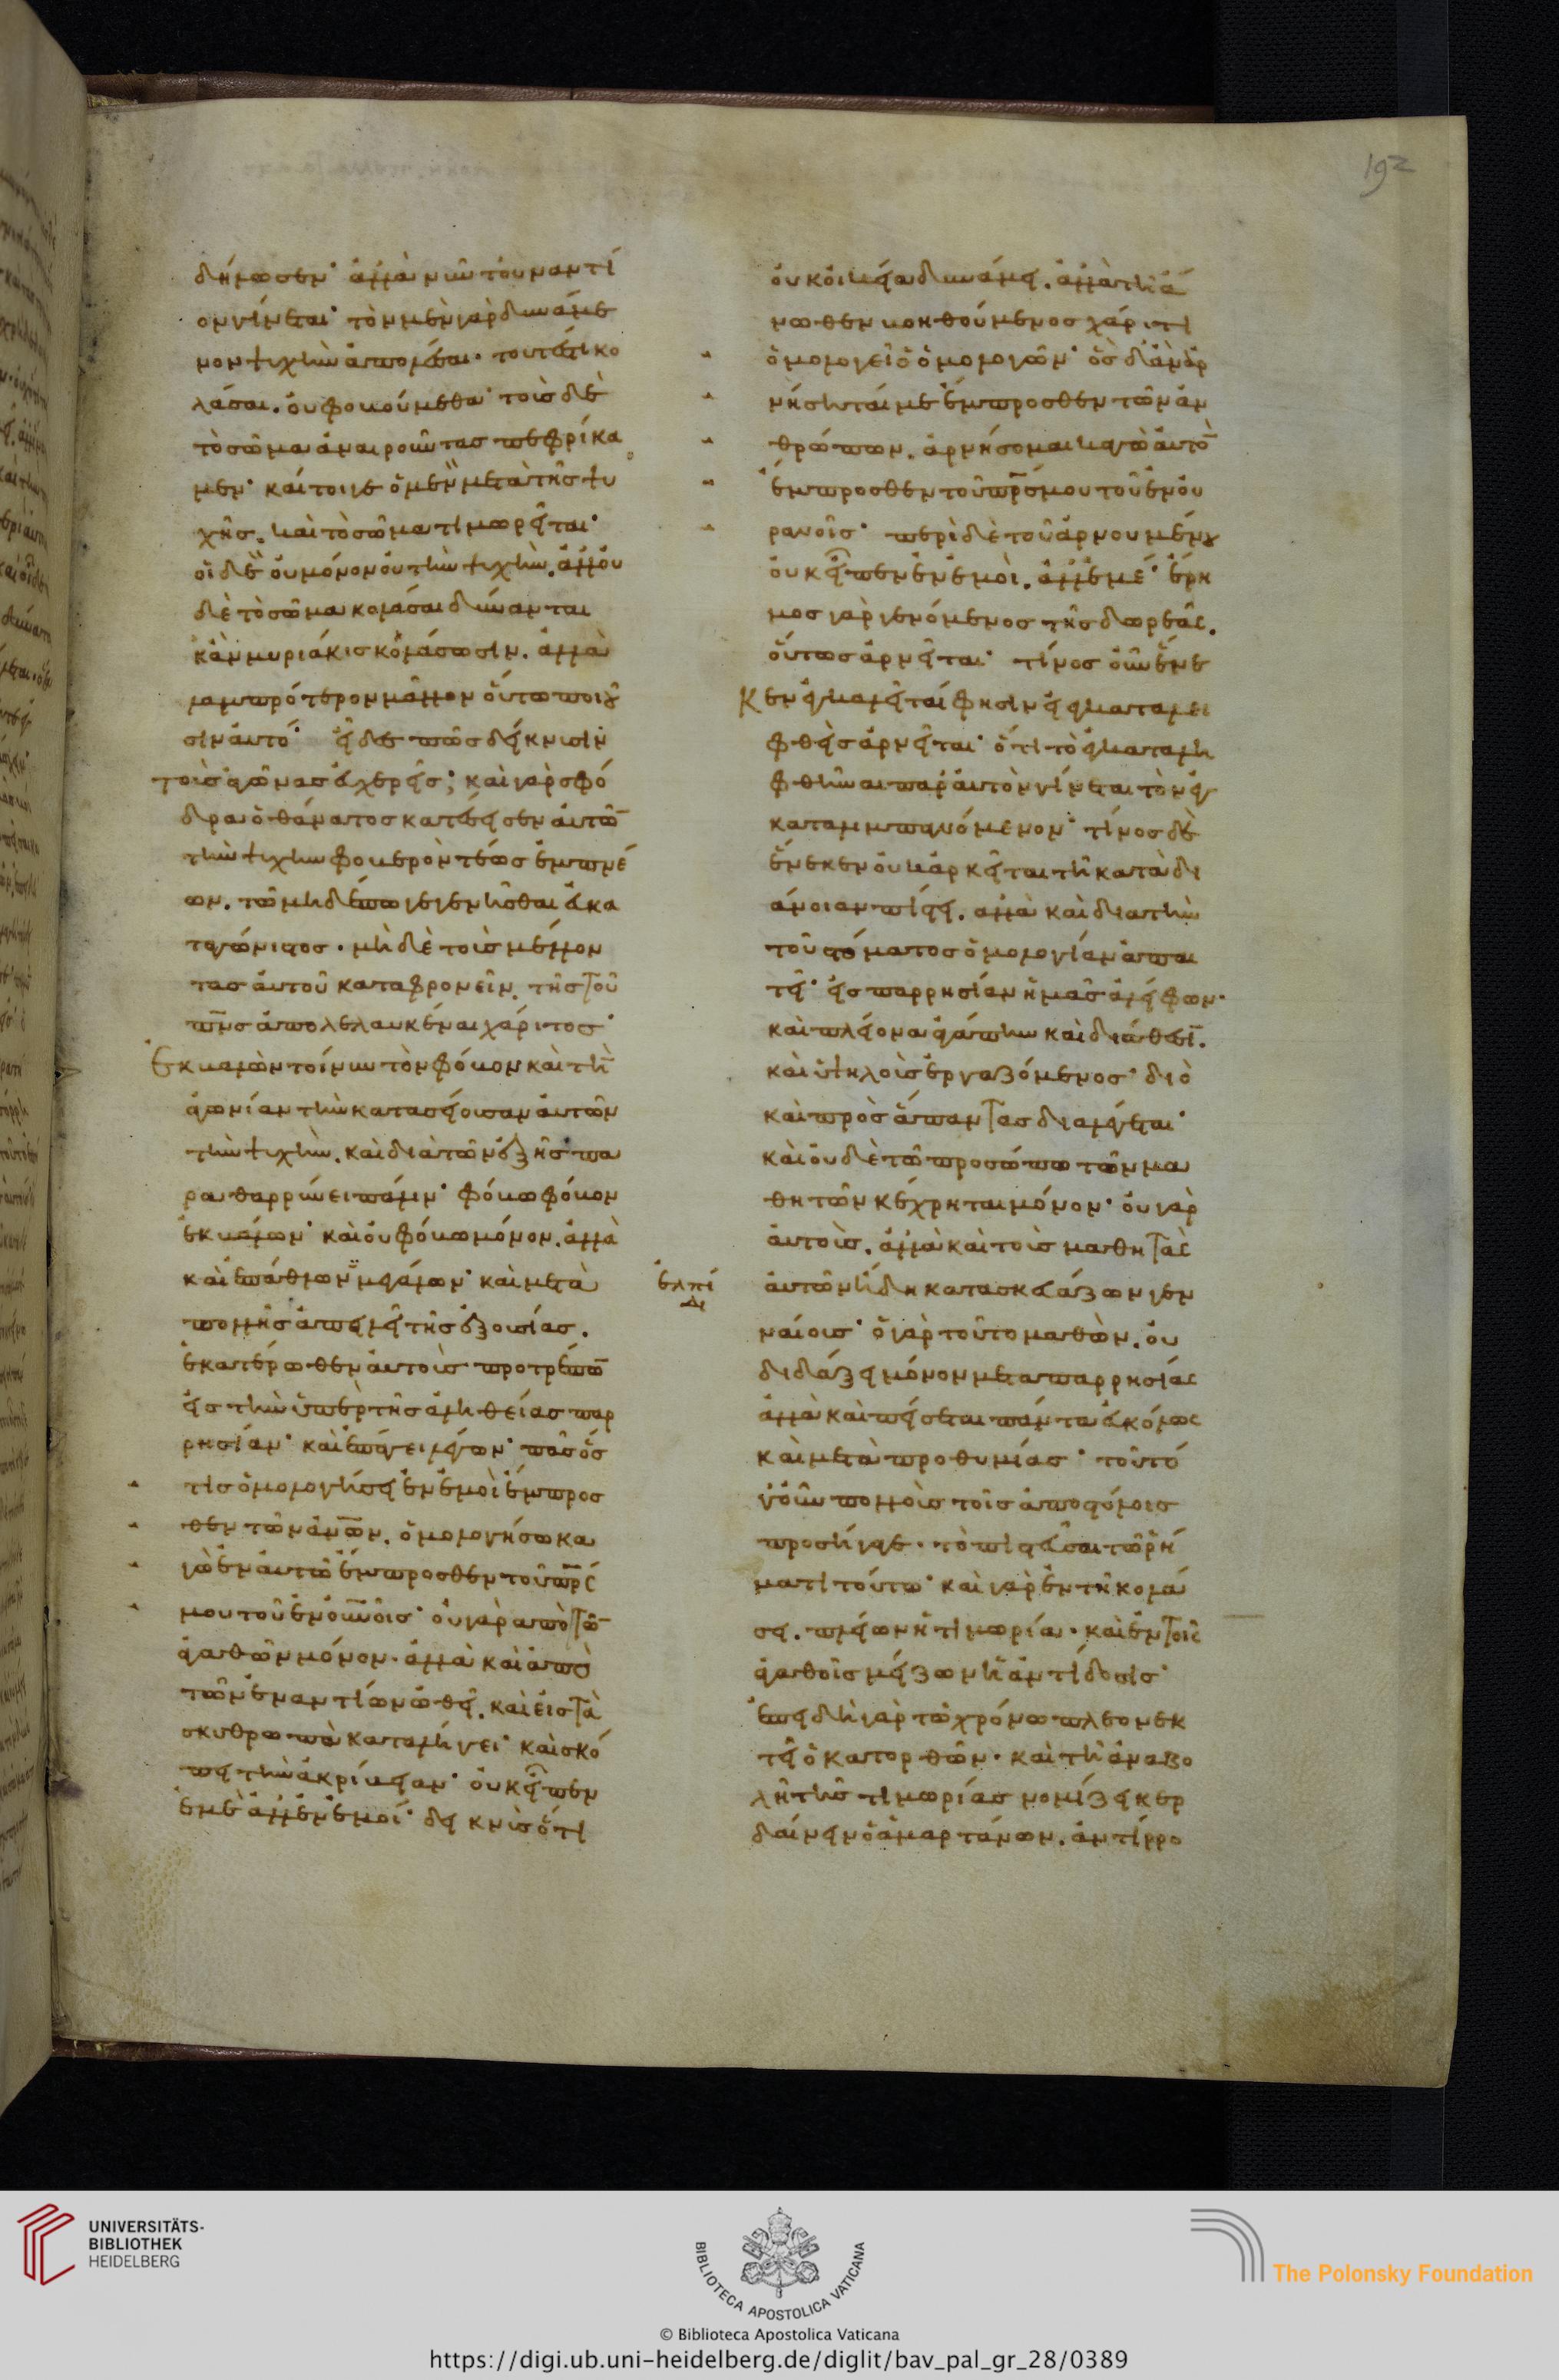 δήμωσεν· ἀλλὰ νῦν τοὐναντί
ον γίνεται· τὸν μὲν γὰρ δυνάμε
νον ψυχὴν ἀπολέσαι. τουτέστι κο
λάσαι. οὐ φοβούμεθα· τοὺς δὲ
τὸ σῶμα ἀναιροῦντας πεφρίκα
μεν· καίτοιγε ὁ μὲν μετὰ τῆς ψυ
χῆς. καὶ τὸ σῶμα τιμωρεῖται·
οἱ δὲ οὐ μόνον οὐ τὴν ψυχὴν. ἀλλ' οὐ
δὲ τὸ σῶμα κολάσαι δύνανται
κἂν μυριάκις κολάσωσιν. ἀλλὰ
λαμπρότερον μᾶλλον οὕτω ποιοῦ
σιν αὐτό· εἶδες πῶς δείκνυσιν
τοὺς ἀγῶνας εὐχερεῖς; καὶ γὰρ σφό
δρα ὁ θάνατος κατέσεισεν αὐτῶν
τὴν ψυχὴν φοβερὸν τέως ἐμπνέ
ων. τῶ μηδέπω γεγενῆσθαι εὐκα
ταγώνιστος. μὴ δὲ τοὺς μέλλον
τας αὐτοῦ καταφρονεῖν. τῆς τοῦ
πνς ἀπολελαυκέναι χάριτος·
Ἐκβαλὼν τοίνυν τὸν φόβον καὶ τὴν
ἀγωνίαν τὴν κατασείουσαν αὐτῶν
τὴν ψυχὴν. καὶ διὰ τῶν ἑξῆς πα
ραθαρρύνει πάλιν· φόβω φόβον
ἐκβάλων· καὶ οὐ φόβω μόνον. ἀλλὰ
καὶ ἐπάθλων μεγάλων· καὶ μετὰ
πολλῆς ἀπειλεῖ τῆς ἐξουσίας.
ἑκατέρωθεν αὐτοὺς προτρέπων
εἰς τὴν ὑπὲρ τῆς ἀληθείας παρ
ρησίαν· καὶ ἐπάγει λέγων· πᾶς ὅσ
τις ὁμολογήσει ἐν ἐμοὶ ἔμπροσ
θεν τῶν ἀνων. ὁμολογήσω κα
γὼ ἐν αὐτῶ ἔμπροσθεν τοῦ πρς
μου τοῦ ἐν οὐνοῖς· οὐ γὰρ ἀπὸ τῶν
ἀγαθῶν μόνον. ἀλλὰ καὶ ἀπὸ
τῶν ἐναντίων ὠθεῖ. καὶ εἰς τὰ
σκυθρωπὰ καταλήγει· καὶ σκό
πει τὴν ἀκρίβειαν· οὐκ εἶπεν
ἐμὲ ἀλλ' ἐν ἐμοί· δεικνὺς ὅτι
οὐκ οἰκεία δυνάμει. ἀλλὰ τῆ ἄ
νωθεν βοηθούμενος χάριτι
ὁμολογεῖ ὁ ὁμολογῶν· ὃς δ' ἂν ἀρ
νήσηταί με ἔμπροσθεν τῶν ἀν
θρώπων. ἀρνήσομαι καγὼ αὐτὸν
ἔμπροσθεν τοῦ πρς μου τοῦ ἐν οὐ
ρανοῖς· περὶ δὲ τοῦ ἀρνουμένου
οὐκ εἶπεν ἐν ἐμοὶ. ἀλλ' ἐμέ· ἔρη
μος γὰρ γενόμενος τῆς δωρεᾶς.
οὕτως ἀρνεῖται· τίνος οὖν ἕνε
κεν ἐγκαλεῖταί φησιν εἰ ἐγκαταλει
φθεὶς ἀρνεῖται· ὅτι τὸ ἐγκαταλη
φθῆναι παρ' αὐτὸν γίνεται τὸν ἐγ
καταλιμπανόμενον· τίνος δὲ
ἕνεκεν οὐκ ἀρκεῖται τῆ κατὰ δι
άνοιαν πίστει. ἀλλὰ καὶ διὰ τὴν
τοῦ στόματος ὁμολογίαν ἀπαι
τεῖ· εἰς παρρησίαν ἡμᾶς ἀλείφων·
καὶ πλείονα ἀγάπην καὶ διάθεσιν.
καὶ ὑψηλοὺς ἐργαζόμενος· διὸ
καὶ πρὸς ἅπαντας διαλέγεται·
καὶ οὐδὲ τῶ προσώπω τῶν μα
θητῶν κέχρηται μόνον· οὐ γὰρ
αὐτοὺς. ἀλλὰ καὶ τοὺς μαθητὰς
ἐλπί
δι
αὐτῶν ἤδη κατασκευάζων γεν
ναίους· ὁ γὰρ τοῦτο μαθὼν. οὐ
διδάξει μόνον μετὰ παρρησίας
ἀλλὰ καὶ πείσεται πάντα εὐκόλως
καὶ μετὰ προθυμίας· τοῦτό
γ' οὖν πολλοὺς τοῖς ἀποστόλοις
προσήγαγε. τὸ πιστεῦσαι τῶ ῥή
ματι τούτω· καὶ γὰρ ἐν τῆ κολά
σει. πλείων ἡ τιμωρία. καὶ ἐν τοῖς
ἀγαθοῖς μείζων ἡ ἀντίδοσις·
ἐπειδὴ γὰρ τῶ χρόνω πλεονεκ
τεῖ ὁ κατορθῶν. καὶ τῆ ἀναβο
λῆ τῆς τιμωρίας νομίζει κερ
δαίνειν ὁ ἁμαρτάνων. ἀντίρρο
192
UNIVERSITÄTS-
BIBLIOTHEK
HEIDELBERG
BIBLIOTECA APOSTOLICA VATICANA
The Polonsky Foundation
© Biblioteca Apostolica Vaticana
https://digi.ub.uni-heidelberg.de/diglit/bav_pal_gr_28/0389